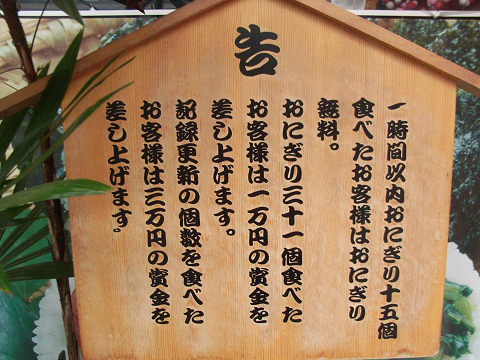 告
一時間以内おにぎり十五個
食べたお客様はおにぎり
無料。
おにぎり三十一個食べた
お客様は一万円の賞金を
差し上げます。
記録更新の個数を食べた
お客様は三万円の賞金を
差し上げます。